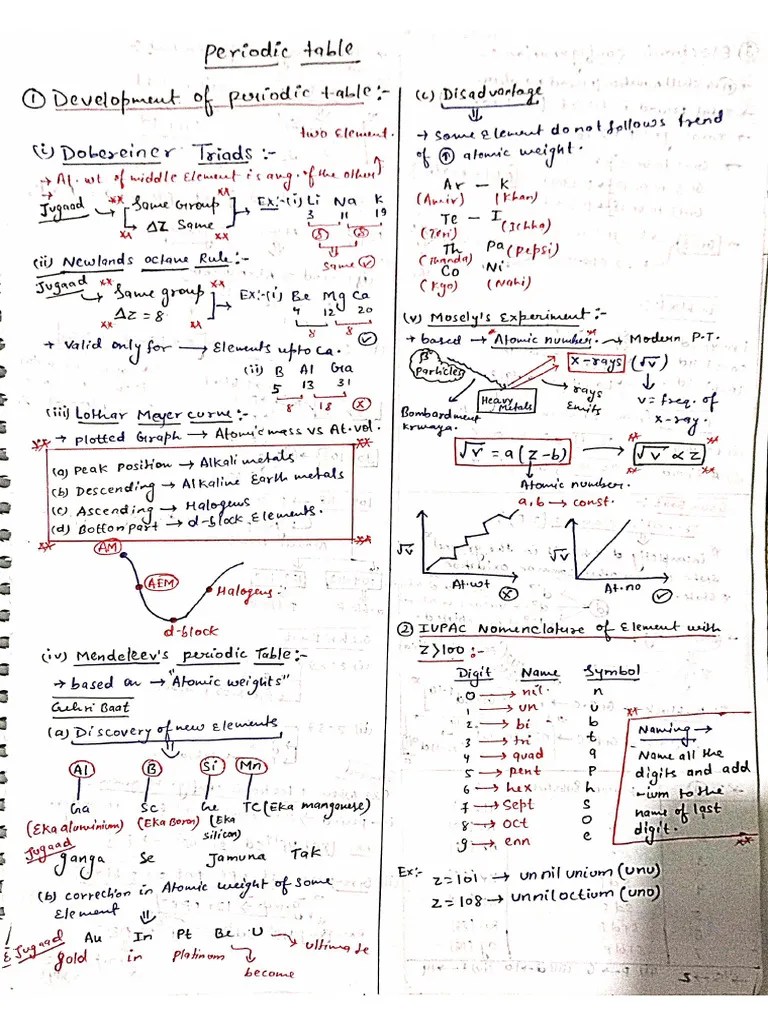 Periodic table
① Development of periodic table:-
two Element.
(i) Dobereiner Triads :-
→ At. wt of middle Element is avg. of the other
Jugaad → Same Group
ΔZ Same
Ex:-(i) Li Na K
3 11 19
8 8
same ✓
(ii) Newlands octane Rule:-
Jugaad → Same group
ΔZ = 8
Ex:-(i) Be Mg Ca
4 12 20
8 8 ✓
→ valid only for → Elements upto Ca.
(ii) B Al Ga
5 13 31
8 18 ×
(iii) Lothar Meyer curve:-
→ plotted Graph → Atomic mass vs At. vol.
(a) Peak Position → Alkali metals
(b) Descending → Alkaline Earth metals
(c) Ascending → Halogens
(d) Botton part → d-block Elements.
AM
AEM
Halogens.
d-block
(iv) Mendeleev's periodic Table:-
→ based on → "Atomic weights"
Gehri Baat
(a) Discovery of new Elements
Al B Si Mn
Ga Sc Ge TC (Eka manganese)
(Eka aluminium) (Eka Boron) (Eka silicon)
Jugaad
ganga Se Jamuna Tak
(b) correction in Atomic weight of some
Element
Au In Pt Be U → ultimate
Jugaad gold in platinum
become
(c) Disadvantage
→ some Element do not follows trend
of ↑ atomic weight.
Ar – K
(Amir) (Khan)
Te – I
(Teri) (Ichha)
Th Pa (Pepsi)
(Thanda)
Co Ni
(Kyo) (Nahi)
(v) Mosely's Experiment:-
→ based → Atomic number. → Modern P.T.
β particles
x-rays (√v)
rays Emits
v = freq. of
x-ray.
Heavy Metals
Bombardment
krwaya.
√v = a(z-b) → √v ∝ z
Atomic number.
a,b → const.
√v
At. wt ×
√v
At. no ✓
② IUPAC Nomenclature of Element with
Z>100:-
Digit Name Symbol
0 → nil n
1 → un u
2 → bi b
3 → tri t
4 → quad q
5 → pent p
6 → hex h
7 → sept s
8 → oct o
9 → enn e
Naming →
Name all the
digits and add
-ium to the
name of last
digit.
Ex:- z=101 → un nil unium (unu)
z=108 → unniloctium (uno)